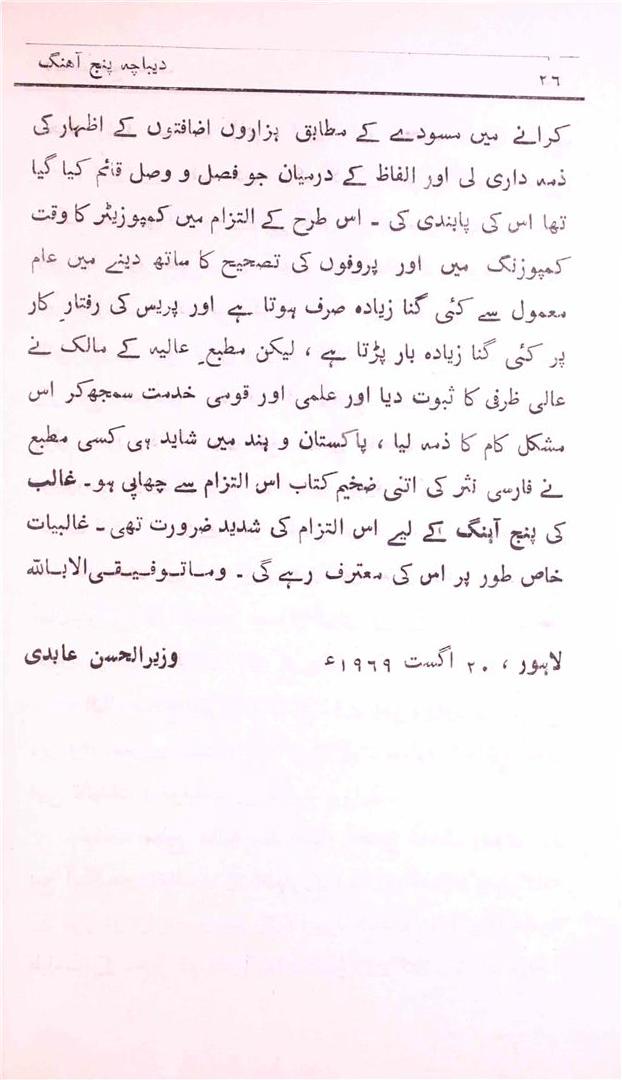 ۲٦
دیباچہ پنج آهنگ
کرانے میں مسودے کے مطابق ہزاروں اضافتوں کے اظہار کی
ذمہ داری لی اور الفاظ کے درمیان جو فصل و وصل قائم کیا گیا
تھا اس کی پابندی کی ۔ اس طرح کے التزام میں کمپوزیٹر کا وقت
کمپوزنگ میں اور پروفوں کی تصحیح کا ساتھ دینے میں عام
معمول سے کئی گنا زیادہ صرف ہوتا ہے اور پریس کی رفتارِ کار
پر کئی گنا زیادہ بار پڑتا ہے ، لیکن مطبعِ عالیہ کے مالک نے
عالی ظرفی کا ثبوت دیا اور علمی اور قومی خدمت سمجھ کر اس
مشکل کام کا ذمہ لیا ، پاکستان و ہند میں شاید ہی کسی مطبع
نے فارسی نثر کی اتنی ضخیم کتاب اس التزام سے چھاپی ہو ۔ غالب
کی پنج آہنگ کے لیے اس التزام کی شدید ضرورت تھی ۔ غالبیات
خاص طور پر اس کی معترف رہے گی ۔ وماتوفیقی الاباللہ
لاہور ، ۲۰ اگست ۱۹٦۹ء
وزیرالحسن عابدی